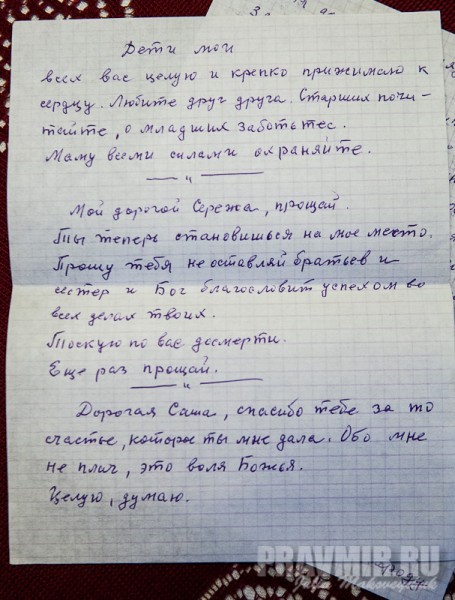 Дети мои
всех вас целую и крепко прижимаю к
сердцу. Любите друг друга. Старших почи-
тайте, о младших заботьтес.
Маму всеми силами охраняйте.
— " —
Мой дорогой Сережа, прощай.
Ты теперь становишься на мое место.
Прошу тебя не оставляй братьев и
сестер и Бог благословит успехом во
всех делах твоих.
Тоскую по вас досмерти.
Еще раз прощай.
— " —
Дорогая Саша, спасибо тебе за то
счастье, которы ты мне дала. Обо мне
не плач, это воля Божья.
Целую, думаю.
PRAVMIR.RU
Julia Makoveychuk